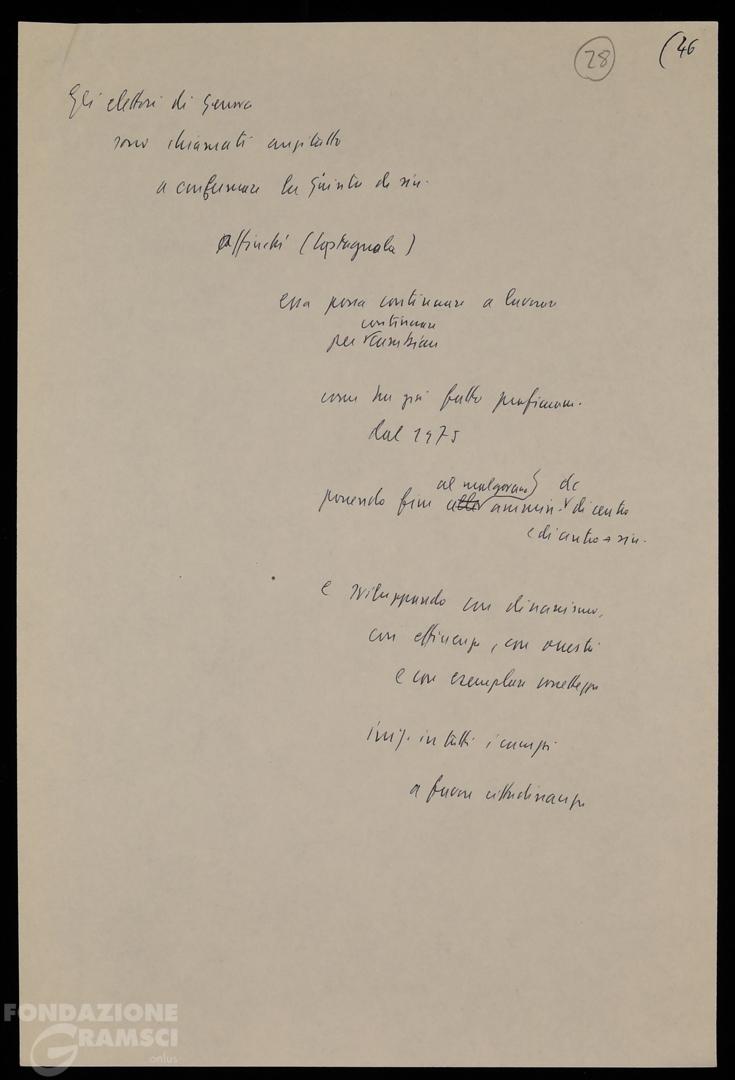 28
(46
Gli elettori di Genova
sono chiamati anzitutto
a confermare la Giunta de sin.
Affinché (Castagnola)
essa possa continuare a lavorare
continuare
per cambiare
come ha già fatto
dal 1975
al malgoverno dc
ponendo fine alle ammin. di centro
e di centro-sin.
e sviluppando con dinamismo,
con efficienza, con onestà
e con esemplare correttezza
iniz. in tutti i campi
a favore cittadinanza
FONDAZIONE
GRAMSCI
onlus